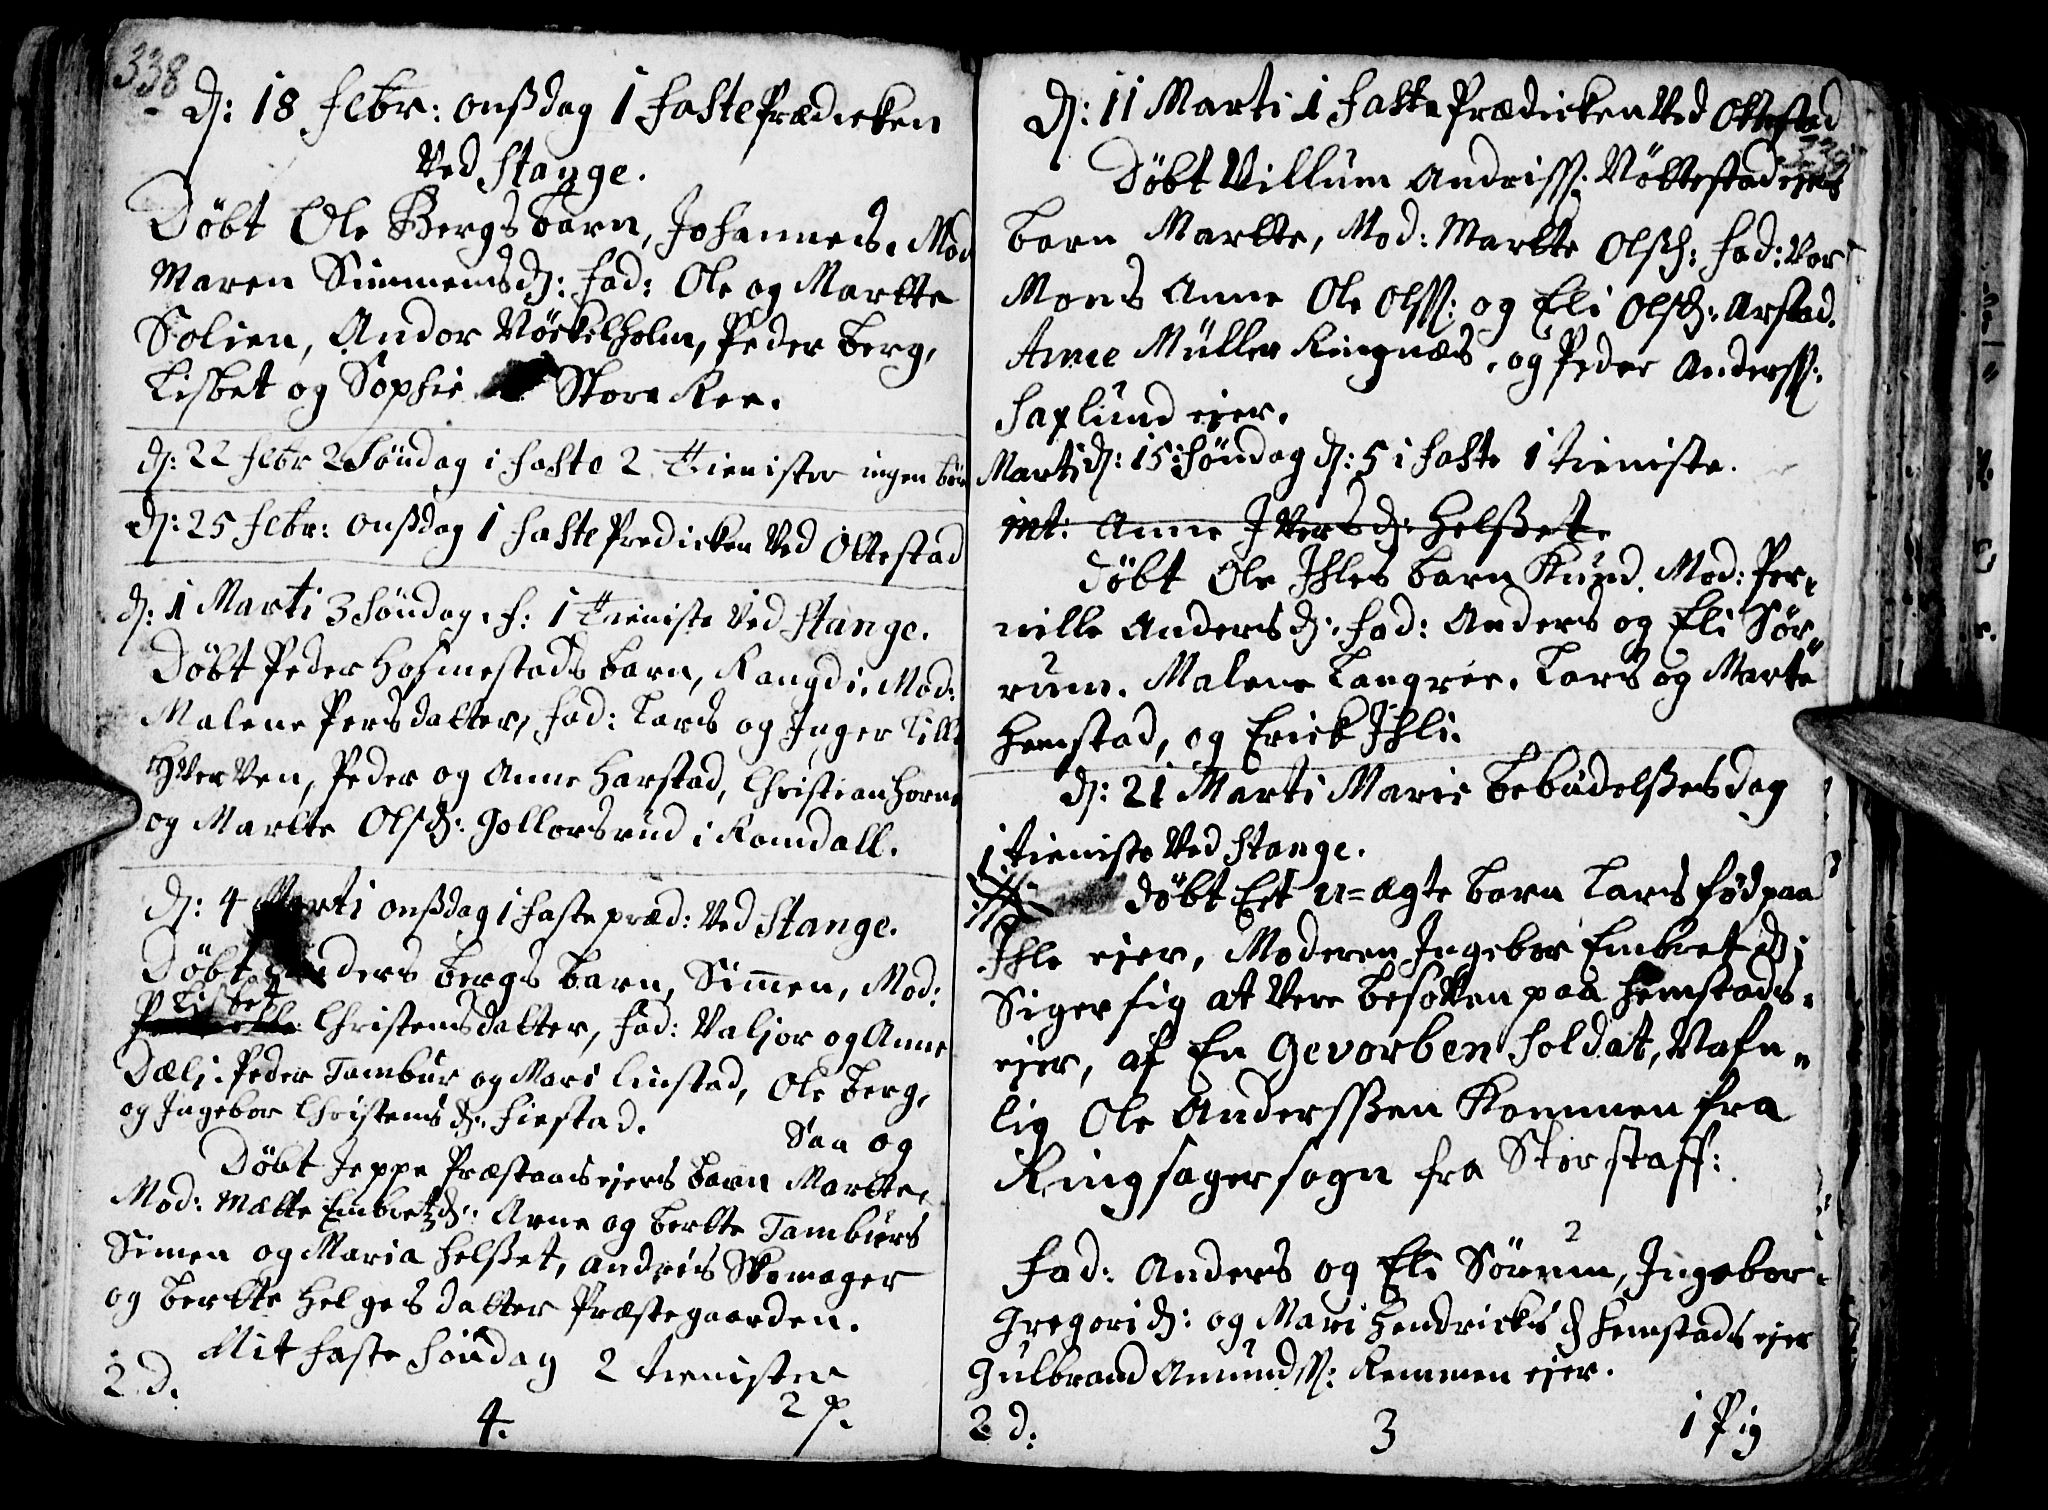 338
d: 18 Febr: onßdag 1 Faste Prædicken
Ved Stange.
Döbt Ole Bergs barn, Johannes. Mod
Maren Simmensd: Fad: Ole og Marthe
Solien, Andor Nöckelholm, Peder berg,
Lisbet og Sophie Store Ree.
d: 22 Febr 2 Söndag i Faste 2 Tienister ingen bör
d: 25 Febr: onßdag 1 Faste Predicken Ved Ottestad
d: 1 Marti 3 Söndag. F: 1 Tieniste Ved Stange.
Döbt Peder Hosmestads barn, Rangdi. Mod:
Malene Persdatter, Fad: Lars og Inger Lille
Hverven, Peder og Anne Harstad, Christian Horne
og Marthe Olsd: Gollorsrud i Romdall.
d: 4 Marti onßdag 1 Faste præd: Ved Stange.
Döbt Anders bergs barn, Simen, Mod:
Lisbet
Christensdatter, Fad: Valjor og Anne
Dæli. Peder Tambur og Mari Linstad, Ole berg,
og Ingebor Christensd: Fiestad.
Saa og
Döbt Jeppe Præstaasejers barn Marthe,
Mod: Mætte Embretzd: Arne og berthe Tamburs
Simen og Maria Helßet, Andris Skomager
og berthe Helgesdatter Præstegaarden.
Mit Faste Söndag 2 tienister
2 d. 4. 2 p.
d: 11 Marti 1 Faste Prædicken Ved Ottestad
339
Döbt Villum Andriss: Nöttestad ejers
barn Marthe, Mod: Marthe Olsd: Fad: Vor
Mons Anne Ole Olss: og Eli Olsd: Arstad.
Anne Müller Ringnæs, og Peder Anderss:
Saxlund ejer.
Marti d: 15: Söndag d: 5 i Faste 1 tieniste.
int: Anne Iversd: Helßet.
Döbt Ole Ihles barn Knud. Mod: Per,
nille Andersd. Fad: Anders og Eli Sör,,
rum. Malene Langrée. Lars og Marte
Hemstad, og Erick Ihli.
d: 21 Marti Marie bebudelßesdag
1 tieniste Ved Stange.
Döbt Eet u=ægte barn Lars fød paa
Ihle ejer, Moderen Ingebor Embretd:
Siger sig at Vere besotten paa Hemstads,
ejer, af En Gevorben Soldat, Nafn,,
lig Ole Anderssen Kommen fra
Ringsager sogn fra Storstaff:
Fad: Anders og Eli Sörum, Ingebor
Gregorid: og Mari Hendricksd Hemstads ejer
Gulbrand Amundss: Rommen ejer.
2 d: 3 1 Pig